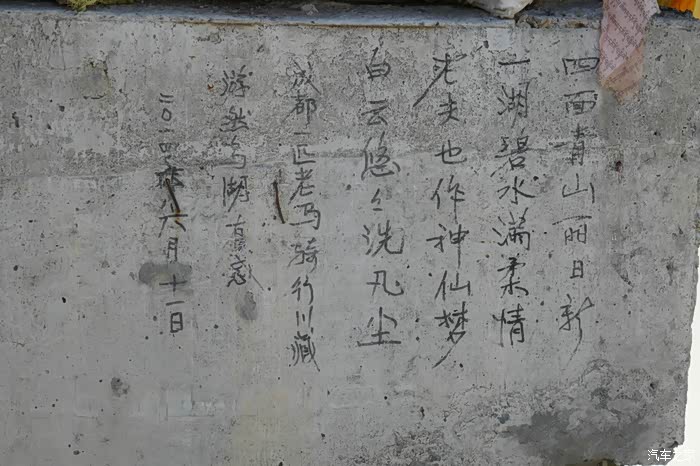 四面青山丽日新
一湖碧水满柔情
老夫也作神仙梦
白云悠々洗凡尘
成都一匹老马骑行川藏
游然乌湖
二〇一四 六月十一日
汽车之家